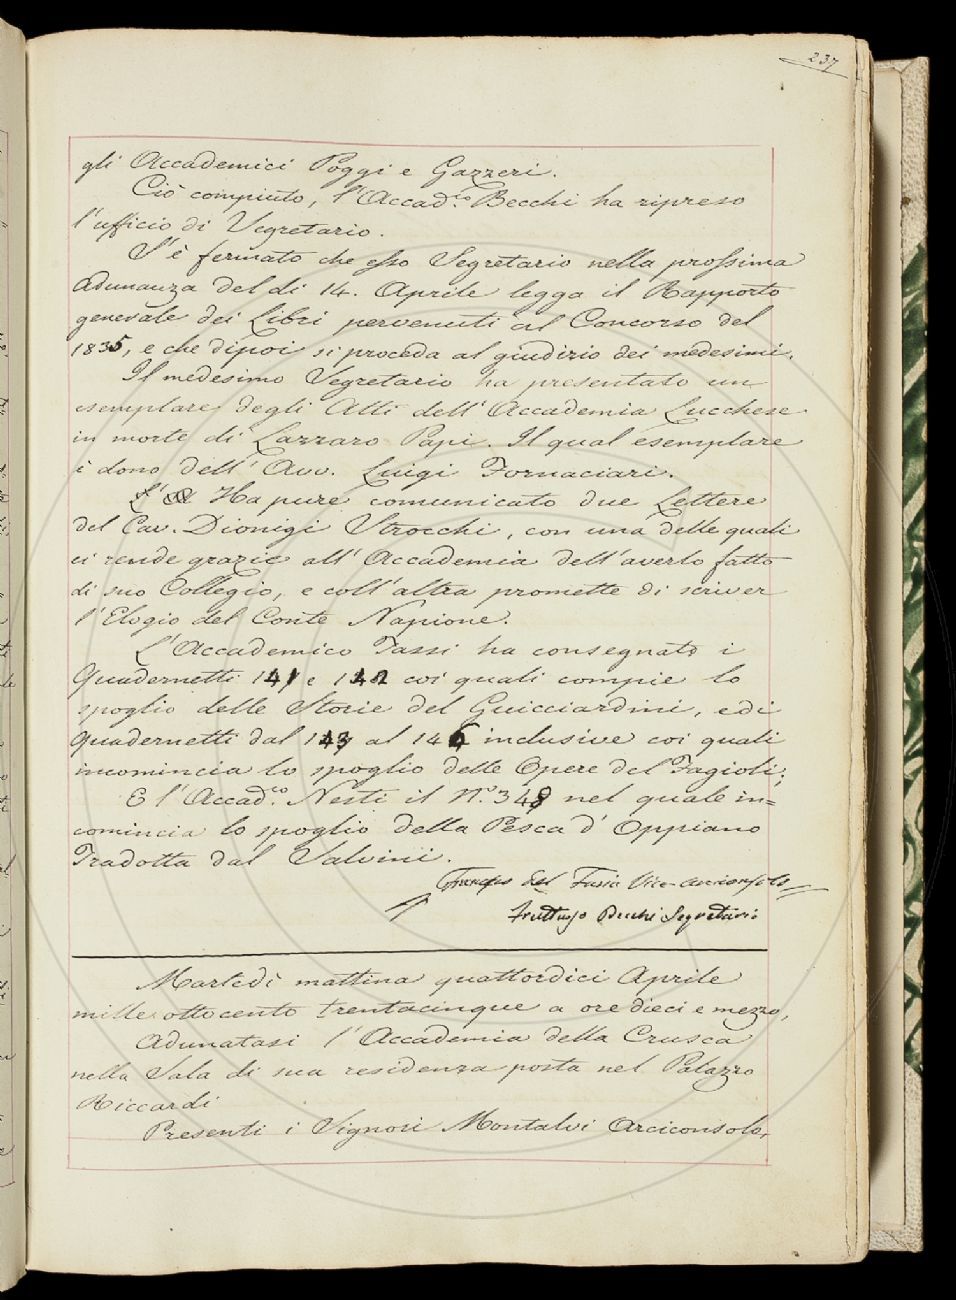 237
gli Accademici Poggi e Gazzeri.
Ciò compiuto, l'Accad.co Becchi ha ripreso
l'ufficio di Segretario.
S'è fermato che esso Segretario nella prossima
Adunanza del dì 14. Aprile legga il Rapporto
generale dei Libri pervenuti al Concorso del
1835, e che dipoi si proceda al giudizio dei medesimi.
Il medesimo Segretario ha presentato un
esemplare degli Atti dell'Accademia Lucchese
in morte di Lazzaro Papi. Il qual esemplare
è dono dell'Avv. Luigi Fornaciari.
Ha pure comunicato due Lettere
del Cav. Dionigi Strocchi, con una delle quali
ei rende grazie all'Accademia dell'averlo fatto
di suo Collegio, e coll'altra promette di scriver
l'Elogio del Conte Napione.
L'Accademico Tassi ha consegnato i
Quadernetti 141 e 142 coi quali compie lo
spoglio delle Storie del Guicciardini, e di
quadernetti dal 143 al 146 inclusive coi quali
incomincia lo spoglio delle Opere del Fagioli;
E l'Accad.co Nesti il N.o 348 nel quale in=
comincia lo spoglio della Pesca d'Oppiano
Tradotta dal Salvini.
Francesco Del Furia Vice-arciconsolo
Fruttuoso Becchi Segretario
Martedì mattina quattordici Aprile
mille ottocento trentacinque a ore dieci e mezzo,
Adunatasi l'Accademia della Crusca
nella Sala di sua residenza posta nel Palazzo
Riccardi
Presenti i Signori Montalvi Arciconsolo,